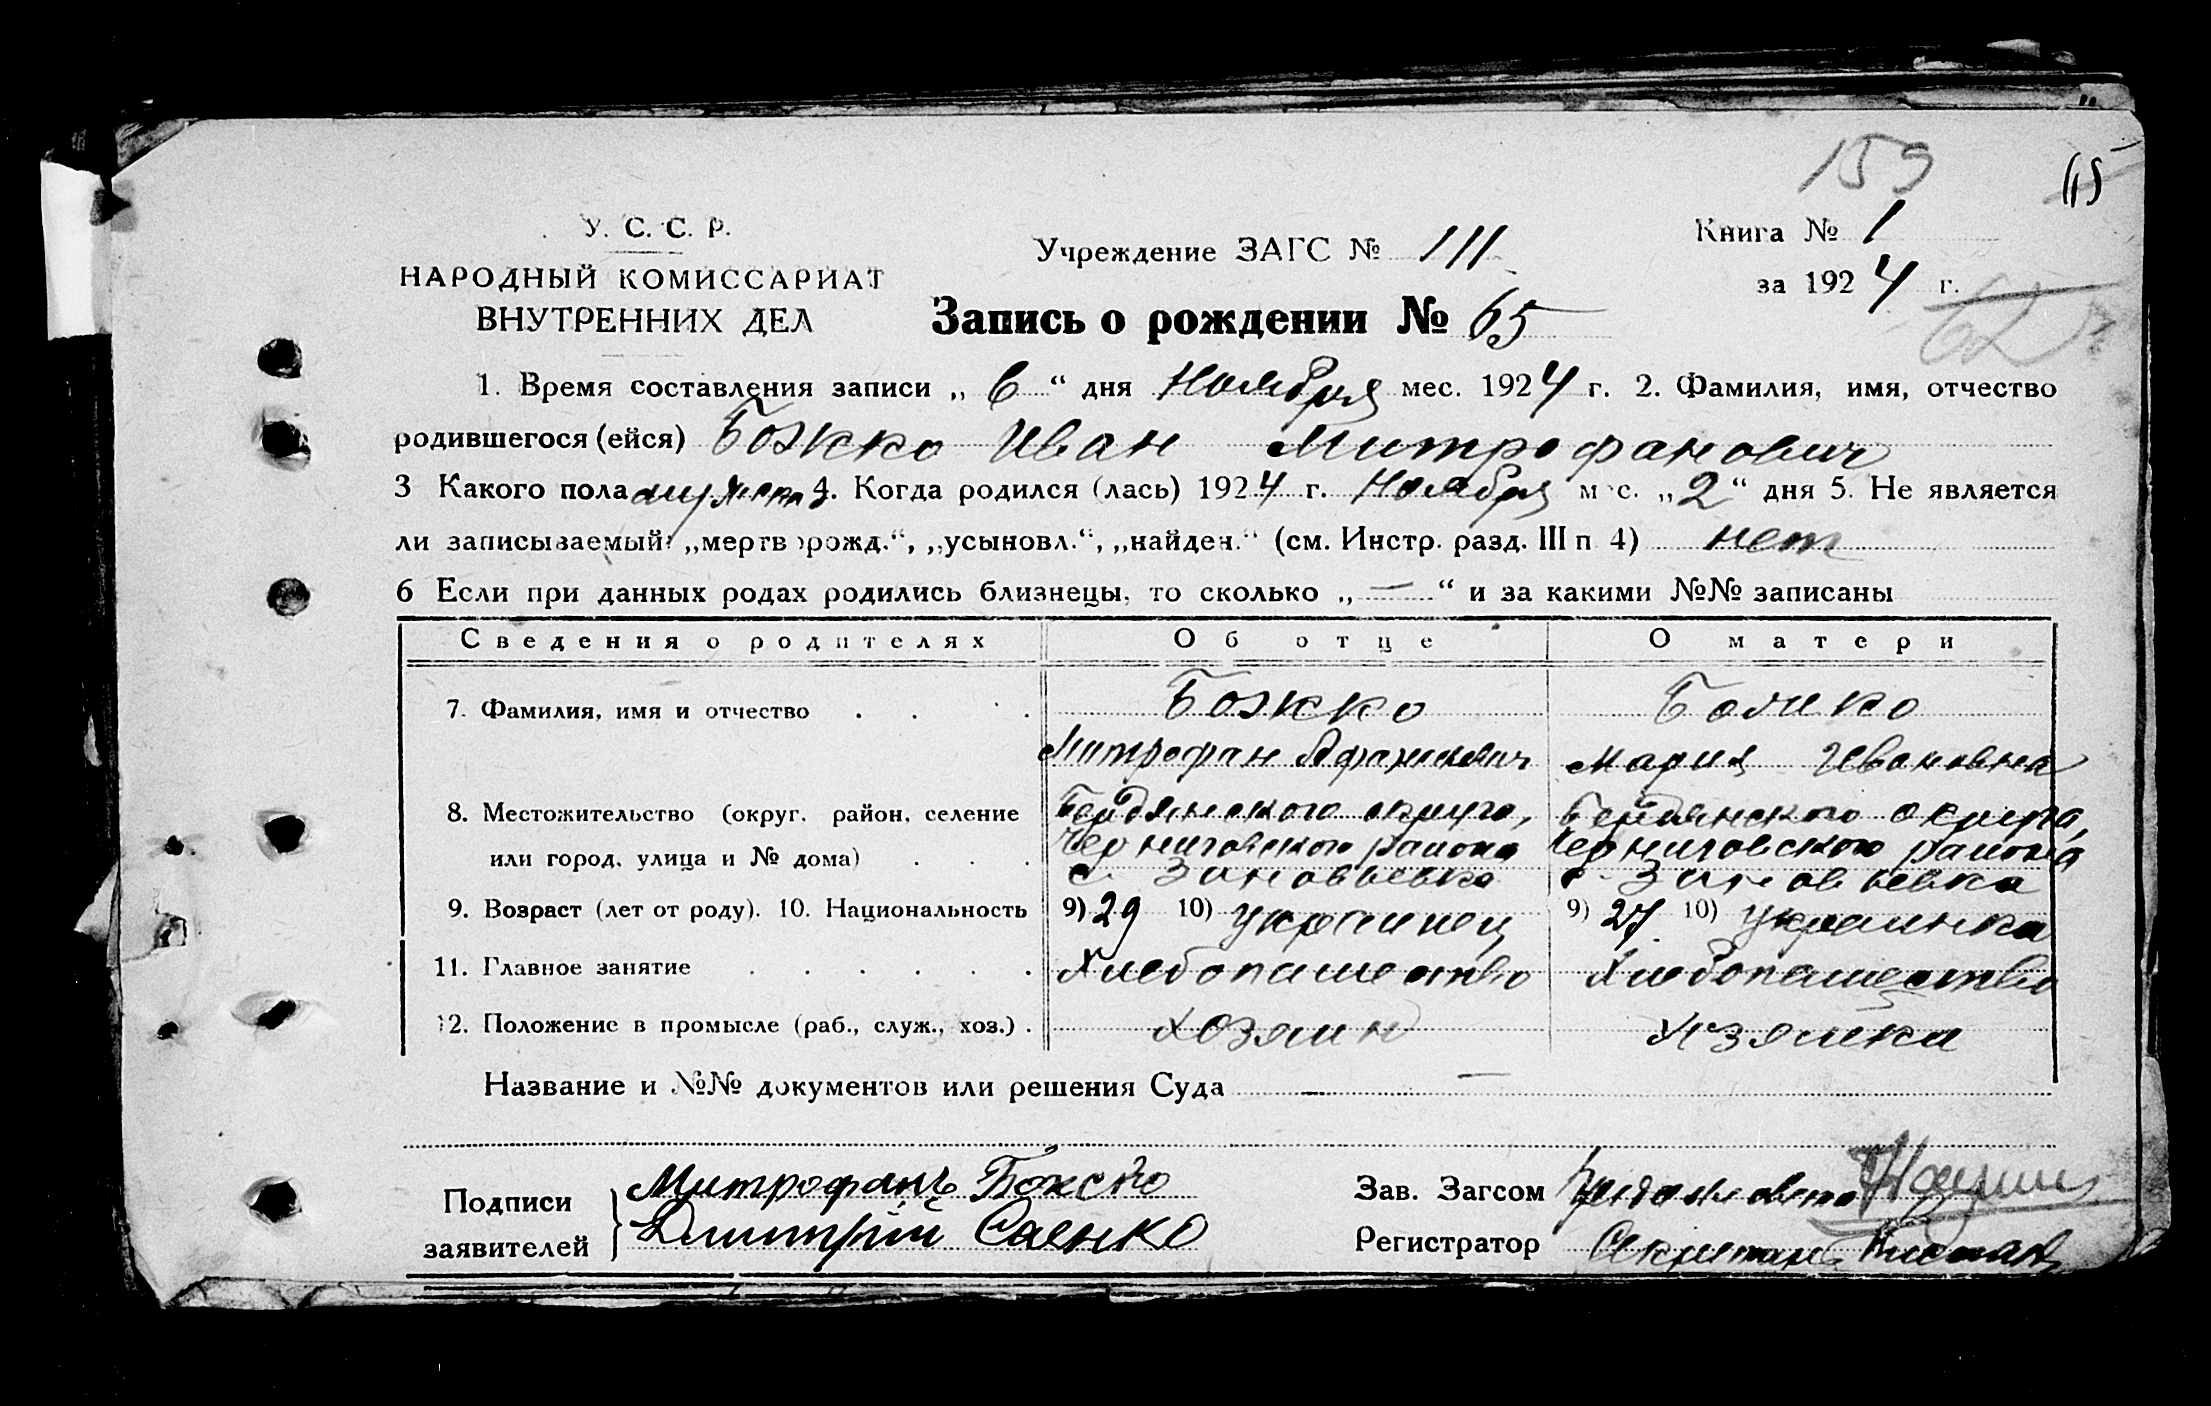 159
65
У. С. С. Р.
НАРОДНЫЙ КОМИССАРИАТ
ВНУТРЕННИХ ДЕЛ
Учреждение ЗАГС № 111
Книга № 1
за 1924 г.
Запись о рождении № 65
1. Время составления записи „ 6 “ дня Ноября мес. 1924 г. 2. Фамилия, имя, отчество
родившегося (ейся) Божко Иван Митрофанович
3 Какого пола 4. Когда родился (лась) 1924 г. Ноября мес. „ 2 “ дня 5. Не является
ли записываемый: „мертворожд.“, „усыновл.“, „найден.“ (см. Инстр. разд. III п 4) нет
6 Если при данных родах родились близнецы, то сколько „ — “ и за какими №№ записаны
Сведения о родителях Об отце О матери
7. Фамилия, имя и отчество Божко Божко
Митрофан Мария Ивановна
8. Местожительство (округ, район, селение Бердянского округа, Бердянского округа,
или город, улица и № дома) Черниговского района Черниговского района
с. Зиновьевка с. Зиновьевка
9. Возраст (лет от роду). 10. Национальность 9) 29 10) украинец 9) 27 10) украинка
11. Главное занятие Хлебопашество Хлебопашество
12. Положение в промысле (раб., служ., хоз.) Хозяин Хозяйка
Название и №№ документов или решения Суда —
Подписи заявителей
Митрофанъ Божко
Дмитрий Саенко
Зав. Загсом
Регистратор Секретарь